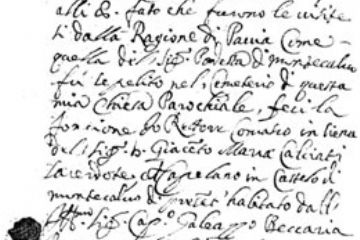 alli 8. fato che furono le visite
ti dalla Ragione di Pavia Come
quella di Sig. Podestà di montecalvo
fù sepelito nel Cemeterio di questa
mia Chiesa Parochiale, feci la
fonsione Io Rettore Comasco in
del Sig. D. Giaceto Maria Calciati
Sacerdote, et Capelano in Castello di
montecalvo di habitato dall
Sig. Cap. Galeazzo Beccaria